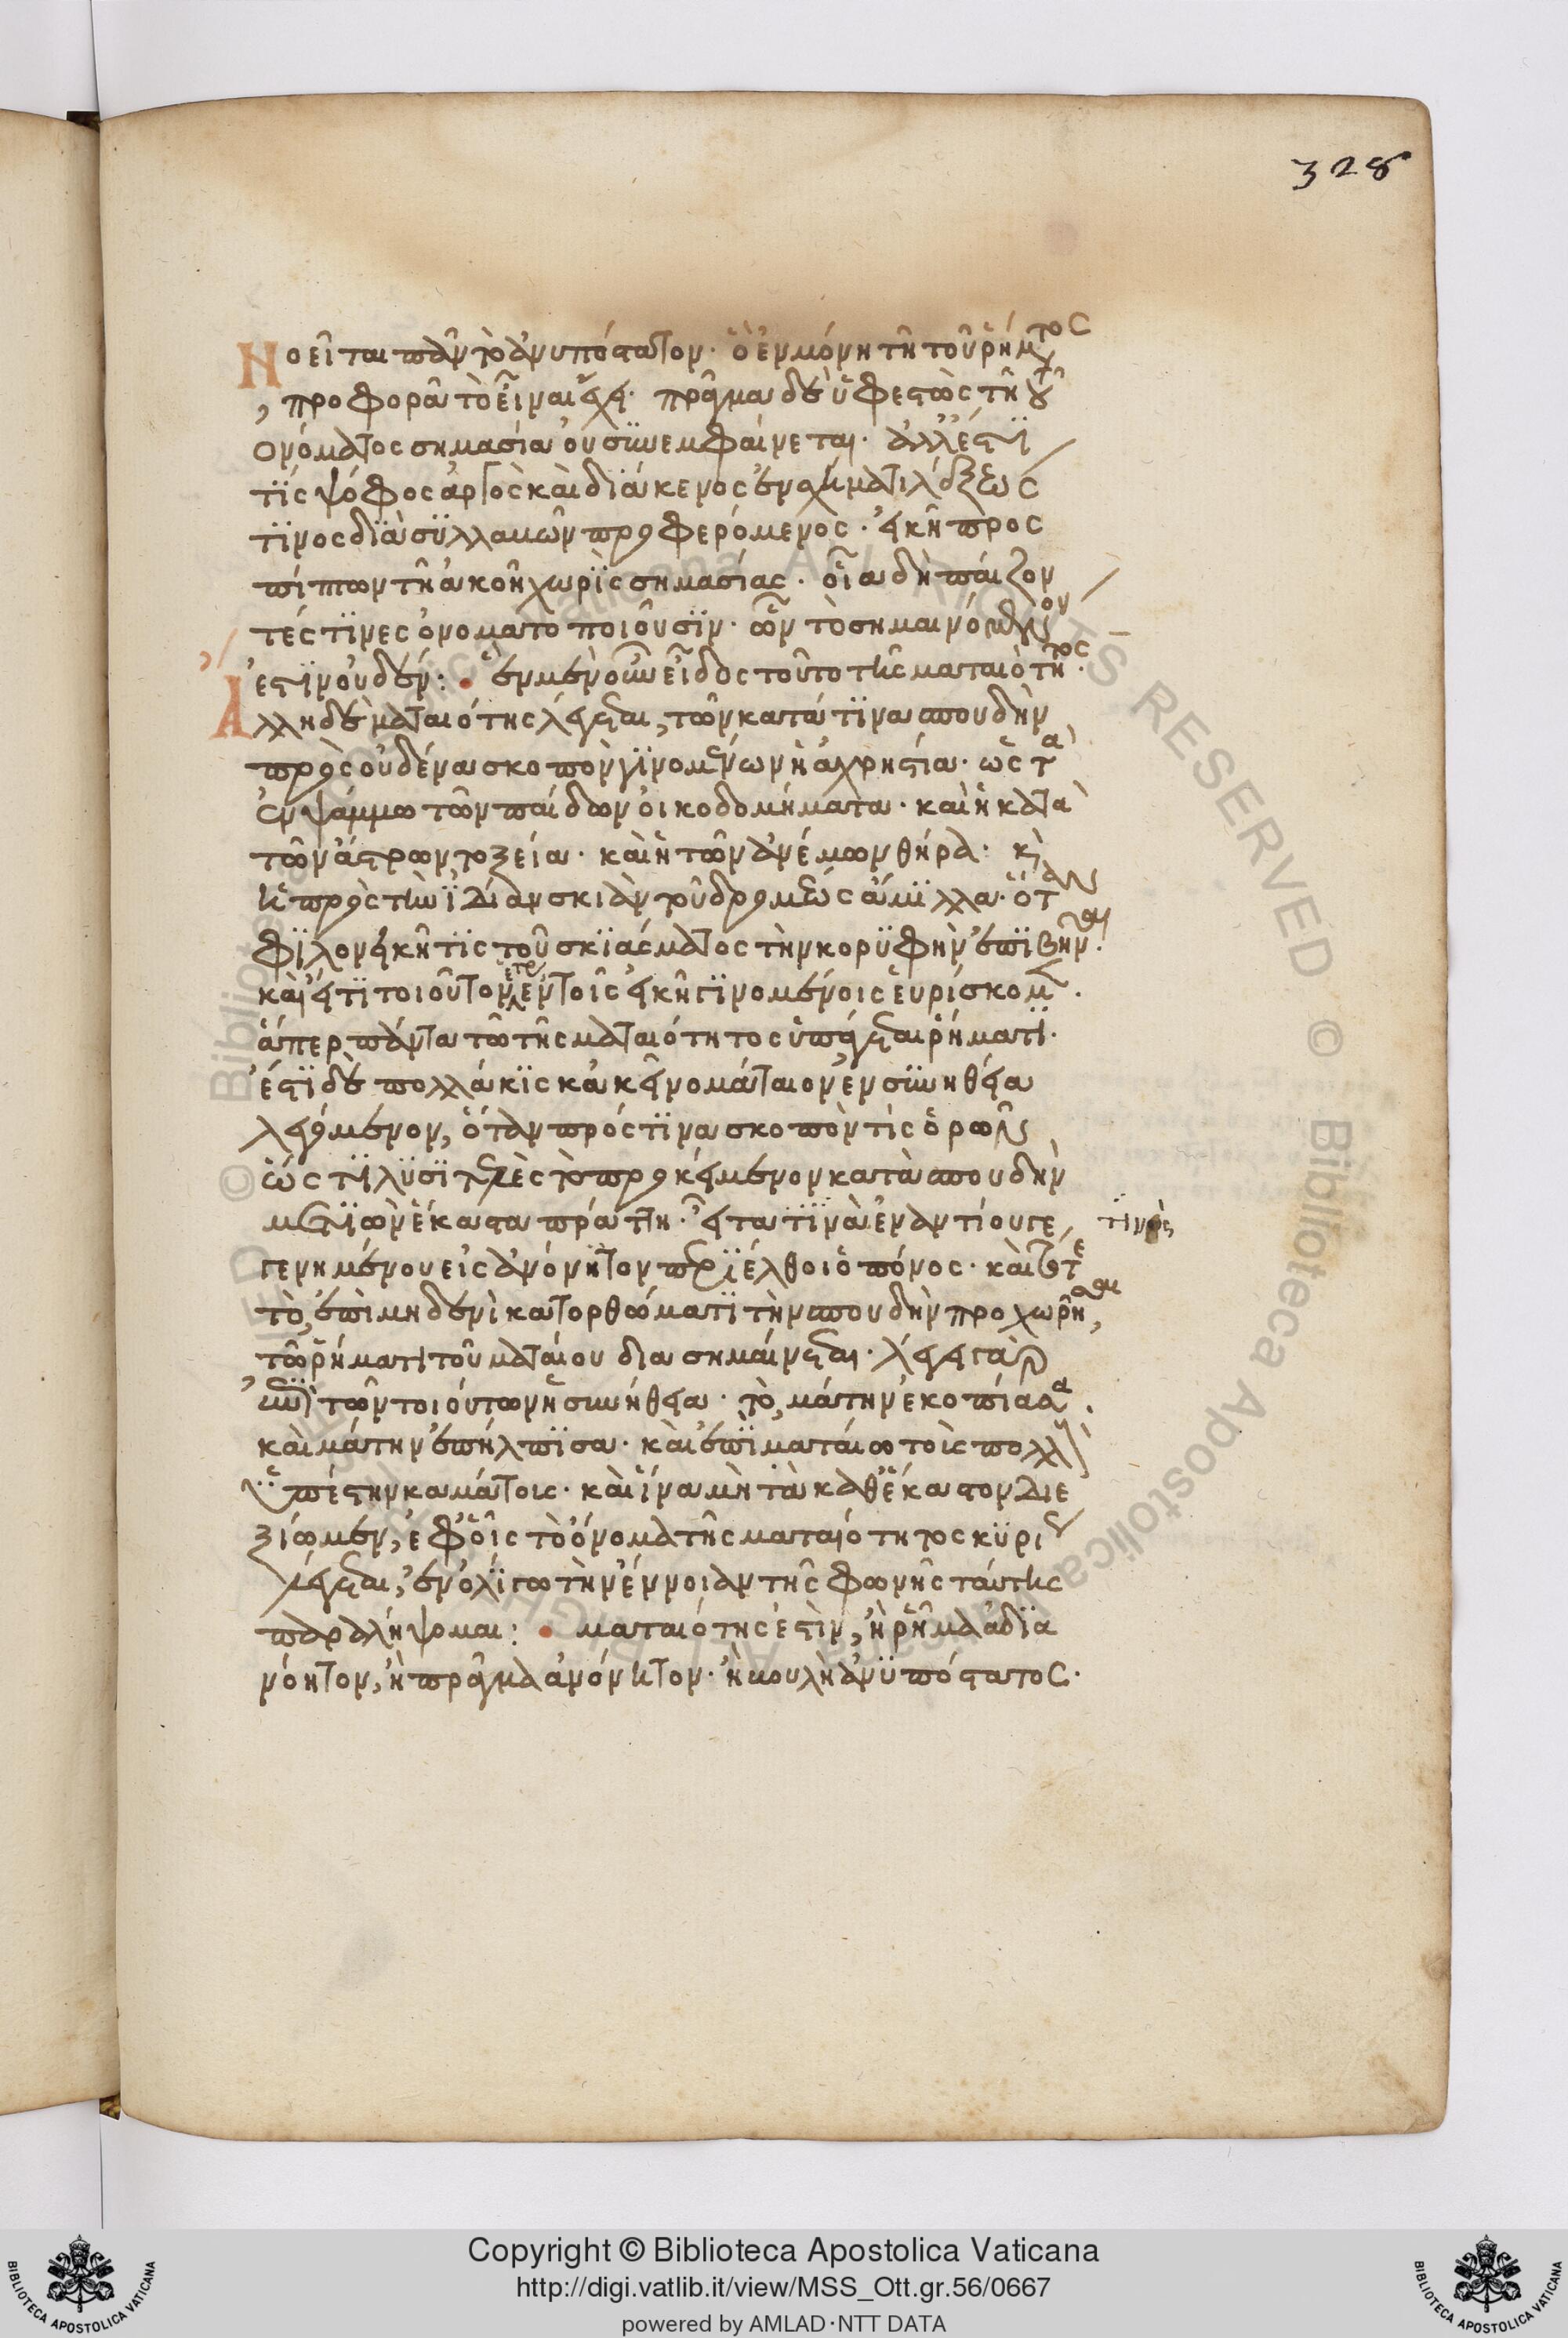 328
Νοεῖται πᾶν τὸ ἀνυπόστατον· ὃ ἐν μόνῃ τῇ τοῦ ῥήματος
προφορᾷ τὸ εἶναι ἔχει· πρᾶγμα δὲ ὑφεστὼς τῇ τοῦ
ὀνόματος σημασία οὐ συνεμφαίνεται· ἀλλ' ἔστι
τὶς ψόφος ἀργὸς καὶ διάκενος ἐν σχήματι λέξεως
τινος διὰ συλλαβῶν προφερόμενος· εἰκῆ προς
πίπτων τῇ ἀκοῇ χωρὶς σημασίας· οἷα δὴ παίζον
τές τινες ὀνοματοποιοῦσιν· ὧν τὸ σημαινόμενον
ἐστὶν οὐδέν: ἓν μὲν οὖν εἶδος τοῦτο τῆς ματαιότητος·
Ἄλλη δὲ ματαιότης λέγεται, τῶν κατά τινα σπουδὴν
πρὸς οὐδένα σκοπὸν γινομένων ἡ ἀχρηστία· ὡς τὰ
ἐν ψάμμω τῶν παίδων οἰκοδομήματα· καὶ ἡ κατὰ
τῶν ἄστρων τοξεία· καὶ ἡ τῶν ἀνέμων θήρα· κὶ
ἡ πρὸς τὴν ἰδίαν σκιὰν τοῦ δρομέως ἅμιλλα· ὅταν
φιλονεικῇ τίς τοῦ σκιάσματος τὴν κορυφὴν ἐπιβῆναι·
καὶ εἴ τι τοιοῦτον ἕτερον ἐν τοῖς εἰκῆ γινομένοις εὑρίσκομεν·
ἅπερ πάντα τῷ τῆς ματαιότητος ὑπάγεται ῥήματι·
ἔστι δὲ πολλάκις κἀκεῖνο μάταιον ἐν συνηθεία
λεγόμενον, ὅταν πρός τινα σκοπὸν τὶς ὁρῶν
ὡς τι λυσιτελὲς τὸ προκείμενον κατὰ σπουδὴν
μετιὼν ἕκαστα πράττῃ· εἶτα τινὰ ἐναντίου γε
τινὸς
γενημένου εἰς ἀνόνητον περιέλθοι ὁ πόνος· καὶ τότε
τὸ, ἐπὶ μηδενὶ κατορθώματι τὴν σπουδὴν προχωρῆσαι,
τῷ ῥήματι τοῦ ματαίου διασημαίνεται· λέγει γὰρ
ἐπὶ τῶν τοιούτων ἡ συνήθεια· τὸ, μάτην ἐκοπίασα·
καὶ μάτην ἐπήλπισα· καὶ ἐπὶ ματαίω τοῖς πολλοῖς
ὑπέστην καμάτοις· καὶ ἵνα μὴ τὰ καθ' ἕκαστον διε
ξίωμεν, ἐφ' οἷς τὸ ὄνομα τῆς ματαιότητος κυρίως
λέγεται, ἐν ὀλίγω τὴν ἔννοιαν τῆς φωνῆς ταύτης
παραλήψομαι: ματαιότης ἐστὶν, ἢ ῥῆμα ἀδια
νόητον, ἢ πρᾶγμα ἀνόνητον· ἢ βουλὴ ἀνυπόστατος·
Copyright © Biblioteca Apostolica Vaticana
http://digi.vatlib.it/view/MSS_Ott.gr.56/0667
powered by AMLAD·NTT DATA